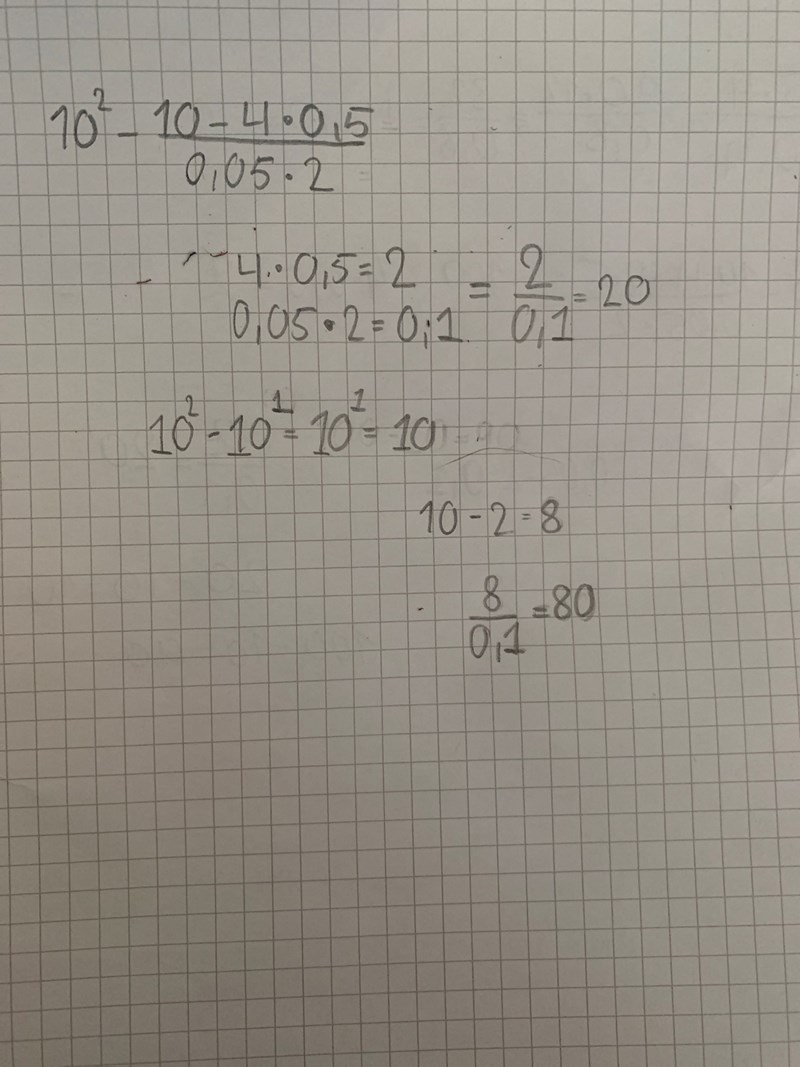 10² - (10 - 4 · 0,5)/(0,05 · 2)
4 · 0,5 = 2
0,05 · 2 = 0,1 = 2/0,1 = 20
10² - 10¹ = 10¹ = 10
10 - 2 = 8
8/0,1 = 80